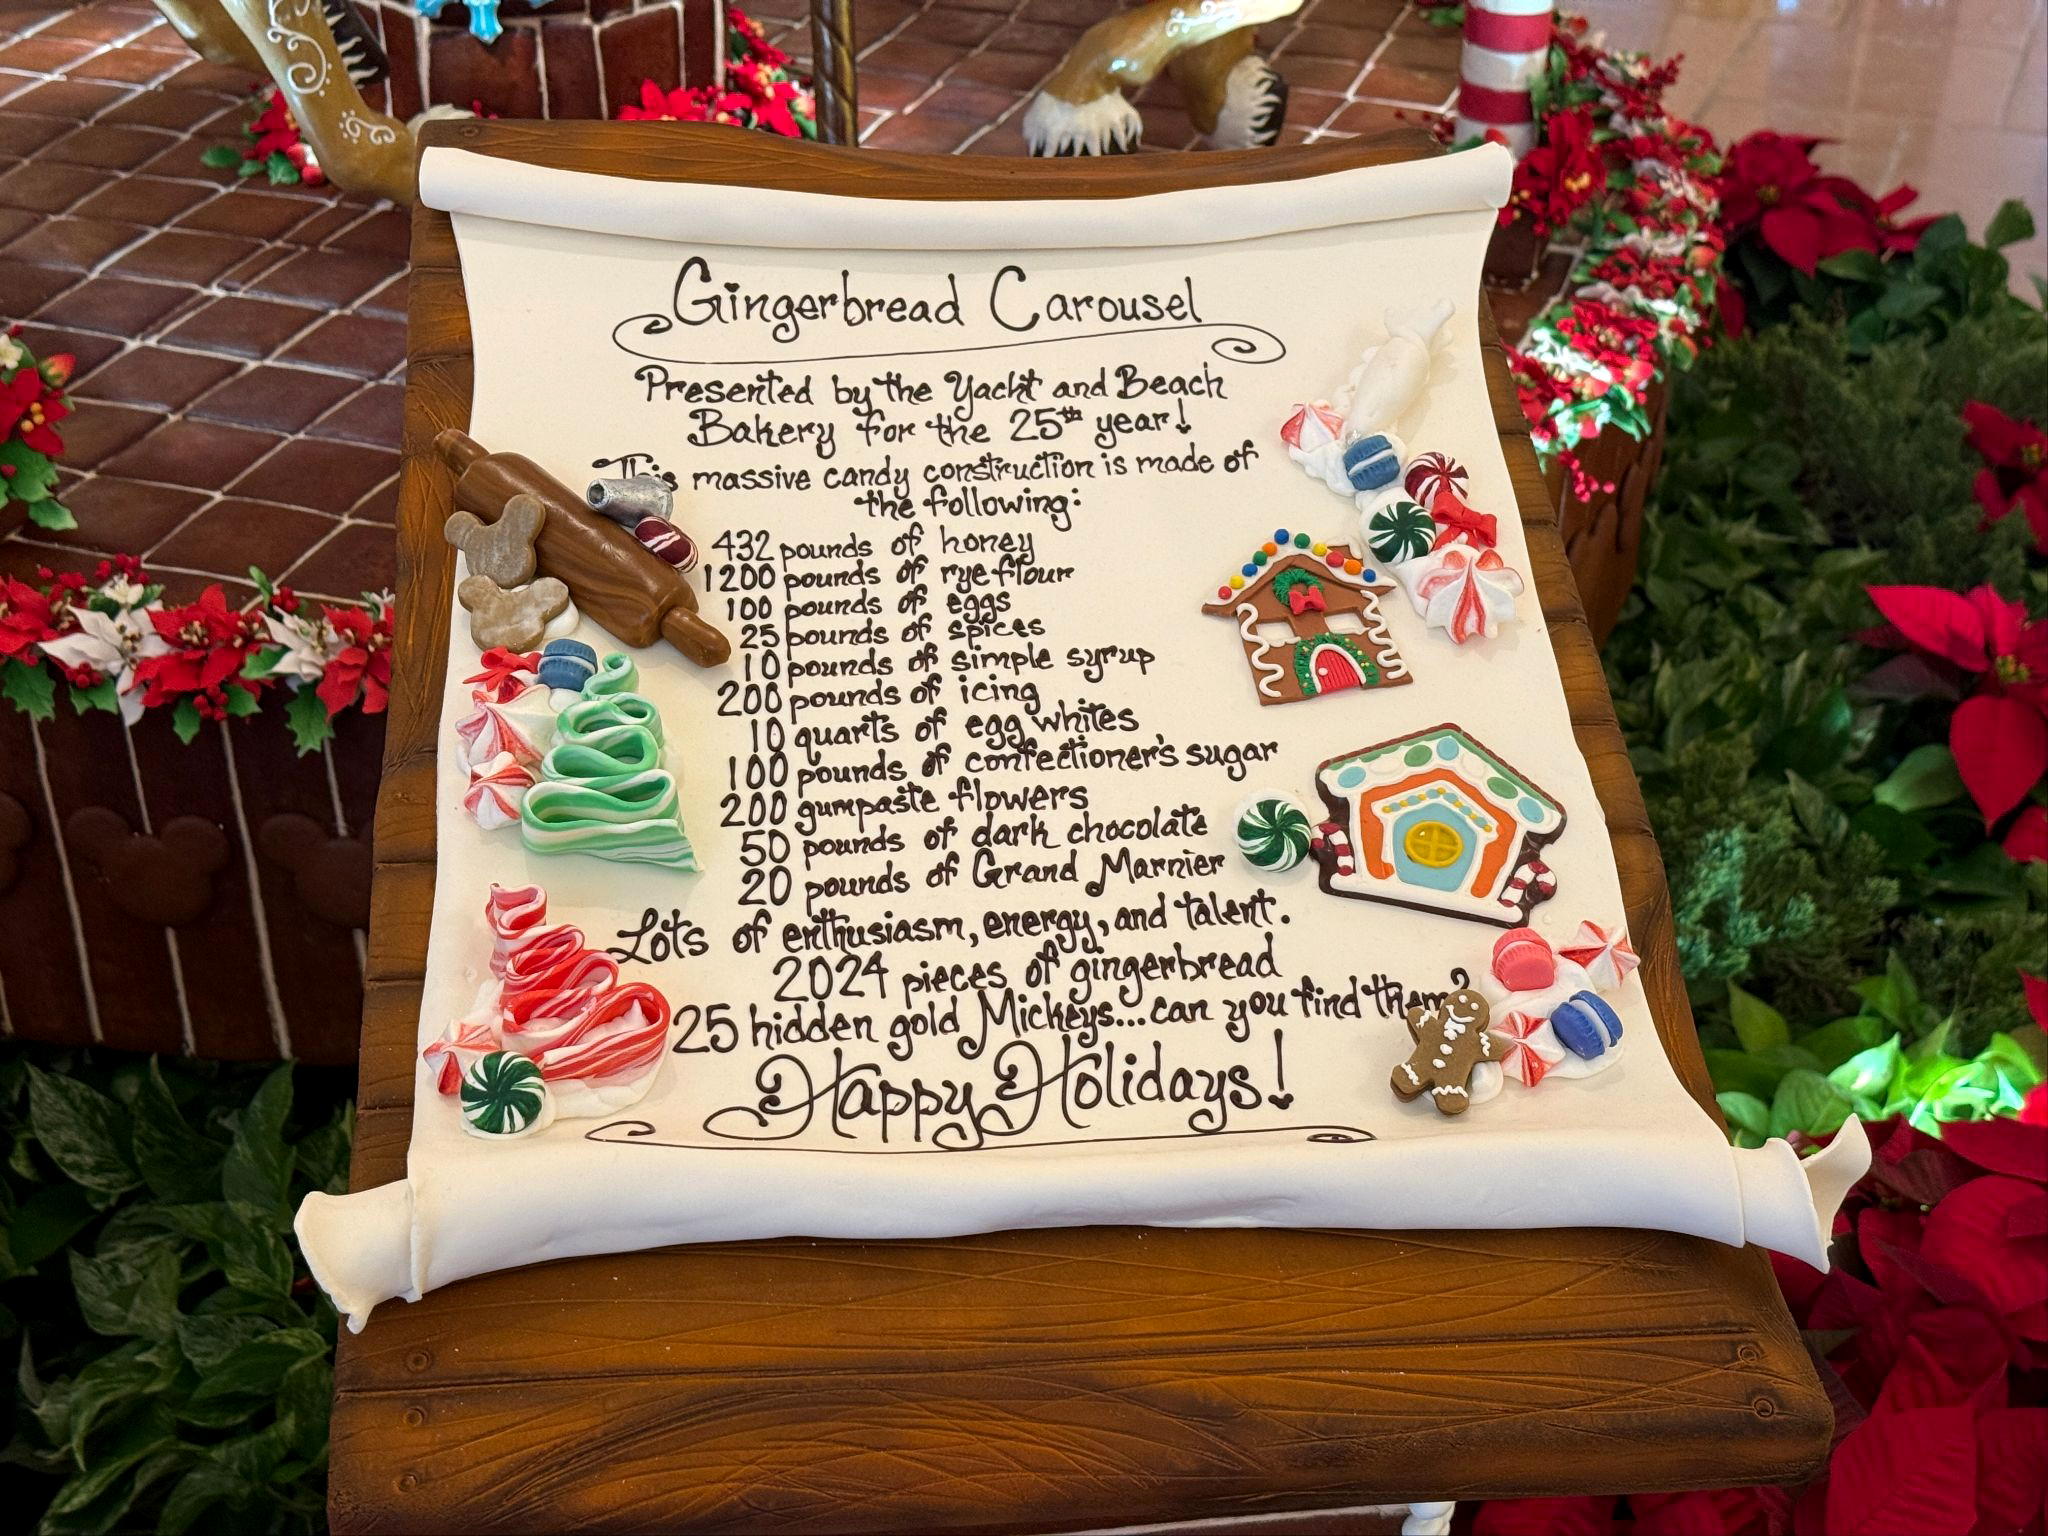 Gingerbread Carousel
Presented by the Yacht and Beach
Bakery for the 25th year!
This massive candy construction is made of
the following:
432 pounds of honey
1200 pounds of rye flour
100 pounds of eggs
25 pounds of spices
10 pounds of simple syrup
200 pounds of icing
10 quarts of egg whites
100 pounds of confectioner's sugar
200 gumpaste flowers
50 pounds of dark chocolate
20 pounds of Grand Marnier
Lots of enthusiasm, energy, and talent.
2024 pieces of gingerbread
25 hidden gold Mickeys...can you find them?
Happy Holidays!